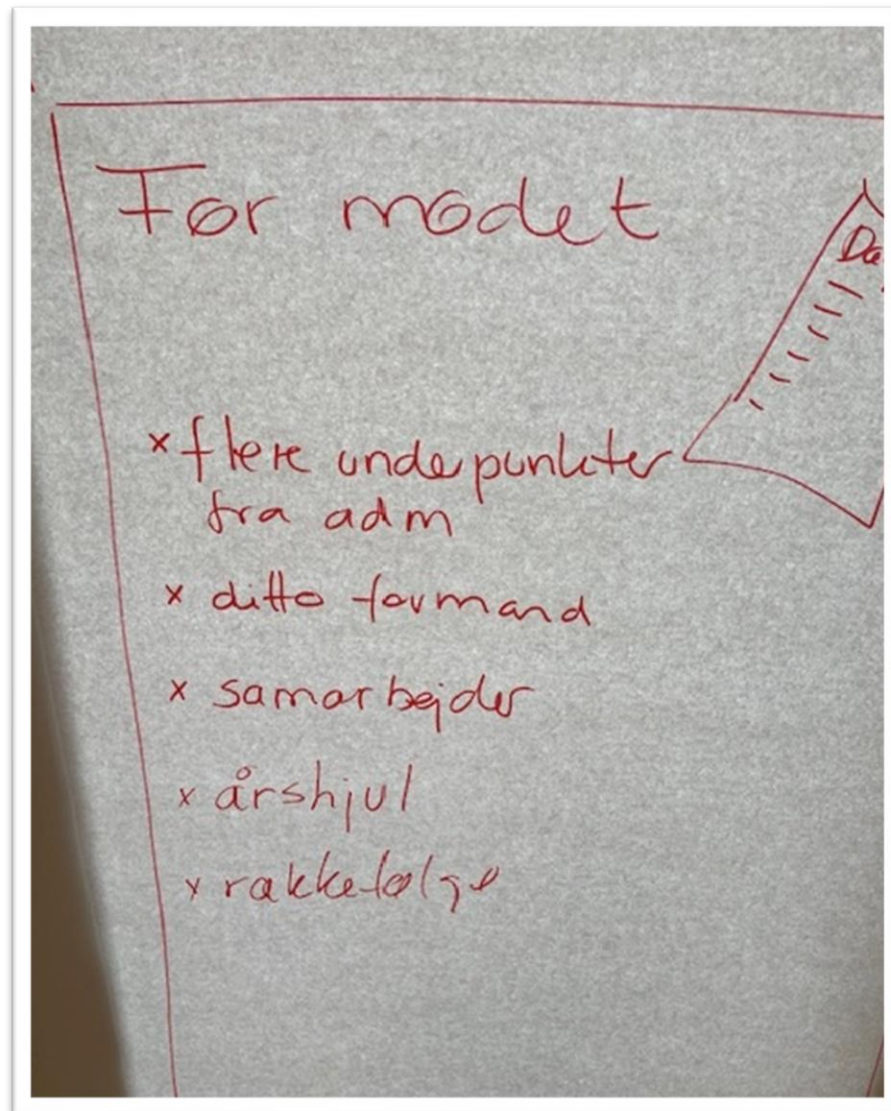 Før mødet
Da
x flere underpunkter
fra adm
x ditto formand
x samarbejder
x årshjul
x rækkefølge